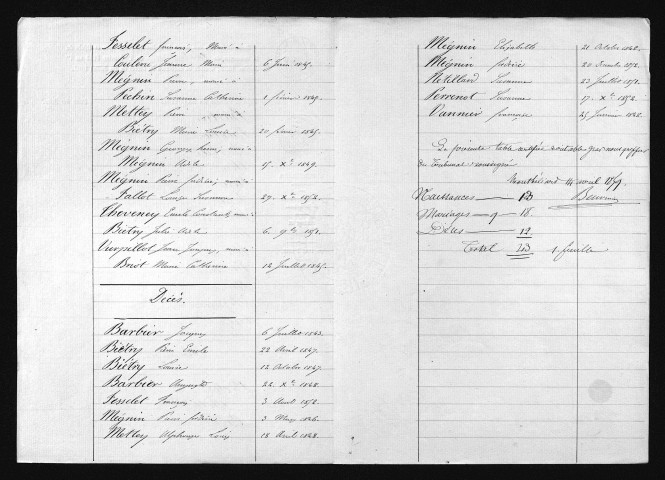 Fesselet françois, Marié à
Coulon Jeanne Marie 6 Juin 1845.
Mégnin Pierre, marié à
Pechin Suzanne Catherine 1 février 1849.
Mettey Pierre marié à
Biétry Marie Louise 20 février 1845.
Mégnin Georges Pierre, marié à
Mégnin Adèle 15 Xbre 1849.
Mégnin Pierre frédéric, marié à
Fallot Louise Suzanne 29 Xbre 1852.
Cheveney Emile Constant, marié à
Biétry Julie Adèle 6 9bre 1851.
Vurpillot Jean Jacques, marié à
Brist Marie Catherine 12 Juillet 1845.
Décès.
Barbier Jacques 6 Juillet 1843.
Biétry Pierre Emile 22 Avril 1847.
Biétry Louise 12 Octobre 1847.
Barbier Auguste 22 Xbre 1848.
Fesselet françois 3 Avril 1852.
Mégnin Pierre frédéric 3 Mars 1846.
Mettey Alphonse Louis 18 Avril 1848.
Mégnin Elisabeth 21 Octobre 1842.
Mégnin frédéric 20 Décembre 1852.
Suzanne 23 Juillet 1851.
Perrenot Suzanne 17 Xbre 1852.
Vannier françoise 25 Janvier 1842.
La présente table certifiée véritable par nous greffier
du Tribunal soussigné
Montbéliard 14 avril 1859
Naissances
Mariages 9 18
Décès 12
Total 1 feuille